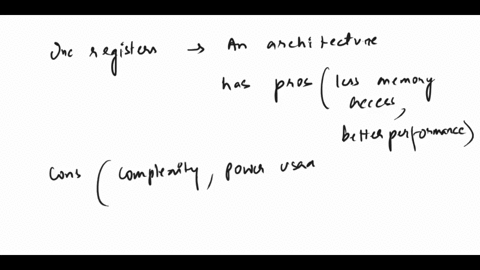 Inc registers → An architecture
has pros (less memory
access,
better performance)
Cons (complexity, power usaa